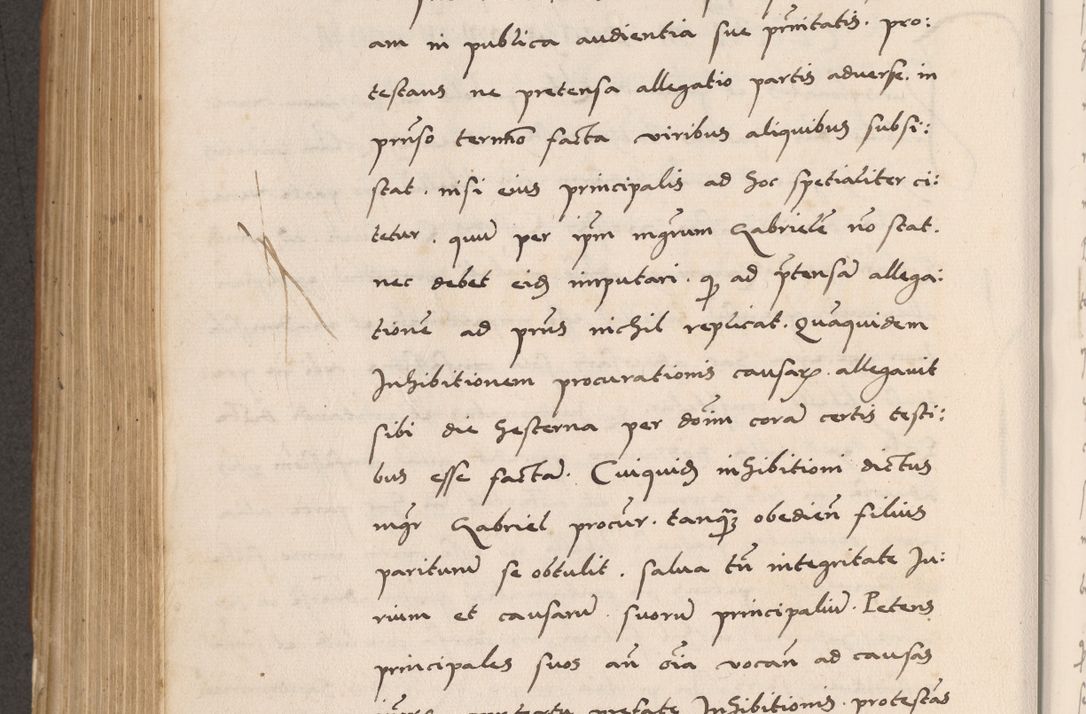 am in publica audientia sue prnitatis. pro:
testans ne pretensa allegatio partis adverse. in
prnso termno facta viribus aliquibus subsi:
stat. nisi eius principalis ad hoc spetialiter ci:
tetur. quu per ipm mgrum Gabriele no stat.
nec debet eid imputari. q ad ptensa allega:
tione ad prns nichil replicat. Quaquidem
Inhibitionem procurationis causar. allegavit
sibi die hesterna per doim cora certis testi:
bus esse facta. Cuiquid inhibitioni dictus
mgr Gabriel procur. tanq obedien filius
parituru se obtulit. salva tn integritate Iu:
rium et causaru. suoru principaliu. Petens
principales suos an oia vocan ad causas
pretate Inhibitionis. protestas